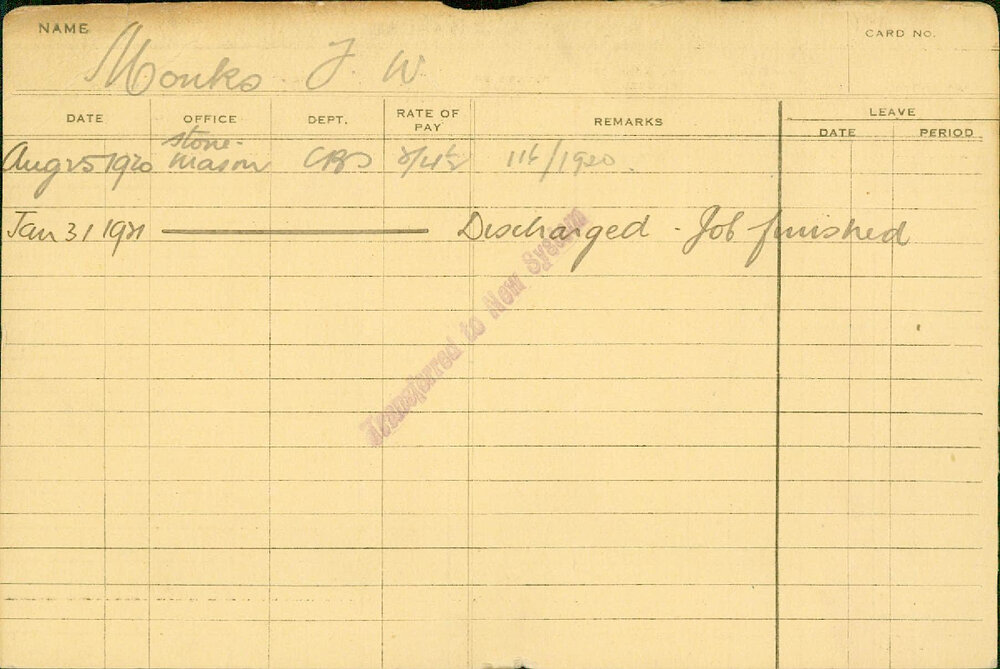 NAME
CARD NO.
Monks J. W.
DATE OFFICE DEPT. RATE OF PAY REMARKS LEAVE
DATE PERIOD
Aug 25 1920 Stone-mason 2/4½ 116/1920
Jan 31 1921 Discharged - Job finished
Transferred to New System